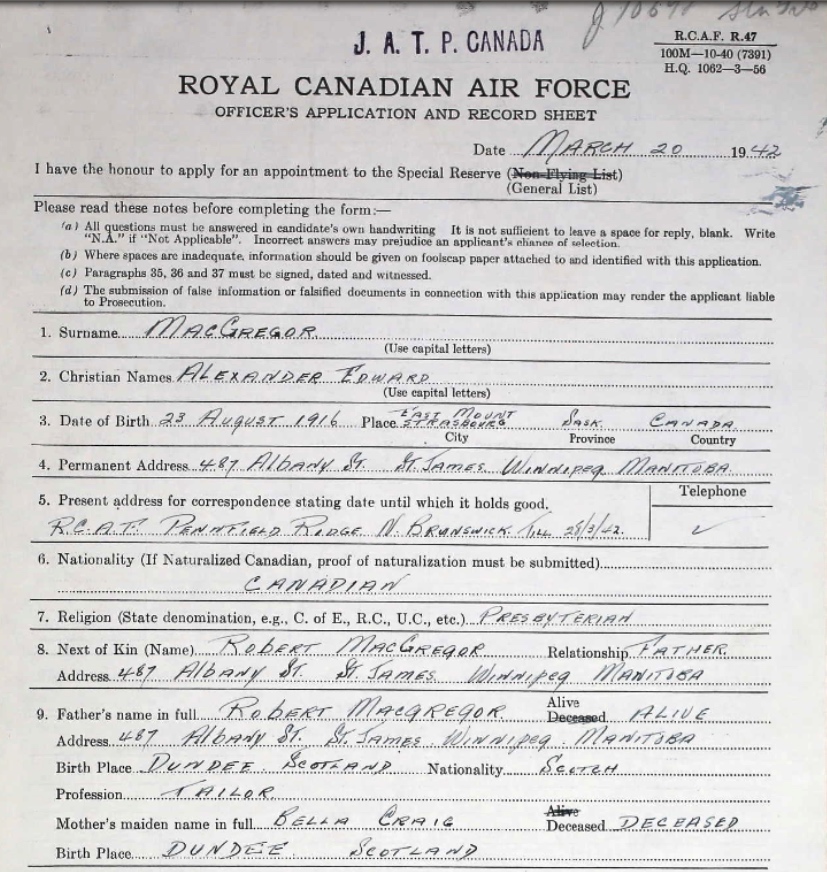 J. A. T. P. CANADA
R.C.A.F. R.47
100M—10-40 (7391)
H.Q. 1062—3—56
ROYAL CANADIAN AIR FORCE
OFFICER'S APPLICATION AND RECORD SHEET
Date MARCH 20 1942
I have the honour to apply for an appointment to the Special Reserve (Non-Flying List)
(General List)
Please read these notes before completing the form:—
(a) All questions must be answered in candidate's own handwriting It is not sufficient to leave a space for reply, blank. Write
"N.A." if "Not Applicable". Incorrect answers may prejudice an applicant's chance of selection.
(b) Where spaces are inadequate, information should be given on foolscap paper attached to and identified with this application.
(c) Paragraphs 35, 36 and 37 must be signed, dated and witnessed.
(d) The submission of false information or falsified documents in connection with this application may render the applicant liable
to Prosecution.
1. Surname MACGREGOR
(Use capital letters)
2. Christian Names ALEXANDER EDWARD
(Use capital letters)
3. Date of Birth 23 AUGUST 1916 Place EAST MOUNT STRASBOURG SASK. CANADA
City Province Country
4. Permanent Address 487 ALBANY ST. ST. JAMES WINNIPEG MANITOBA.
5. Present address for correspondence stating date until which it holds good. Telephone
R.C.A.F. PENNFIELD RIDGE N. BRUNSWICK. TILL 28/3/42.
6. Nationality (If Naturalized Canadian, proof of naturalization must be submitted)
CANADIAN
7. Religion (State denomination, e.g., C. of E., R.C., U.C., etc.) PRESBYTERIAN
8. Next of Kin (Name) ROBERT MACGREGOR Relationship FATHER
Address 487 ALBANY ST. ST. JAMES WINNIPEG MANITOBA
9. Father's name in full ROBERT MACGREGOR Alive Deceased ALIVE
Address 487 ALBANY ST. ST. JAMES. WINNIPEG. MANITOBA
Birth Place DUNDEE SCOTLAND Nationality SCOTCH
Profession TAILOR
Mother's maiden name in full BELLA CRAIG Alive Deceased DECEASED
Birth Place DUNDEE SCOTLAND